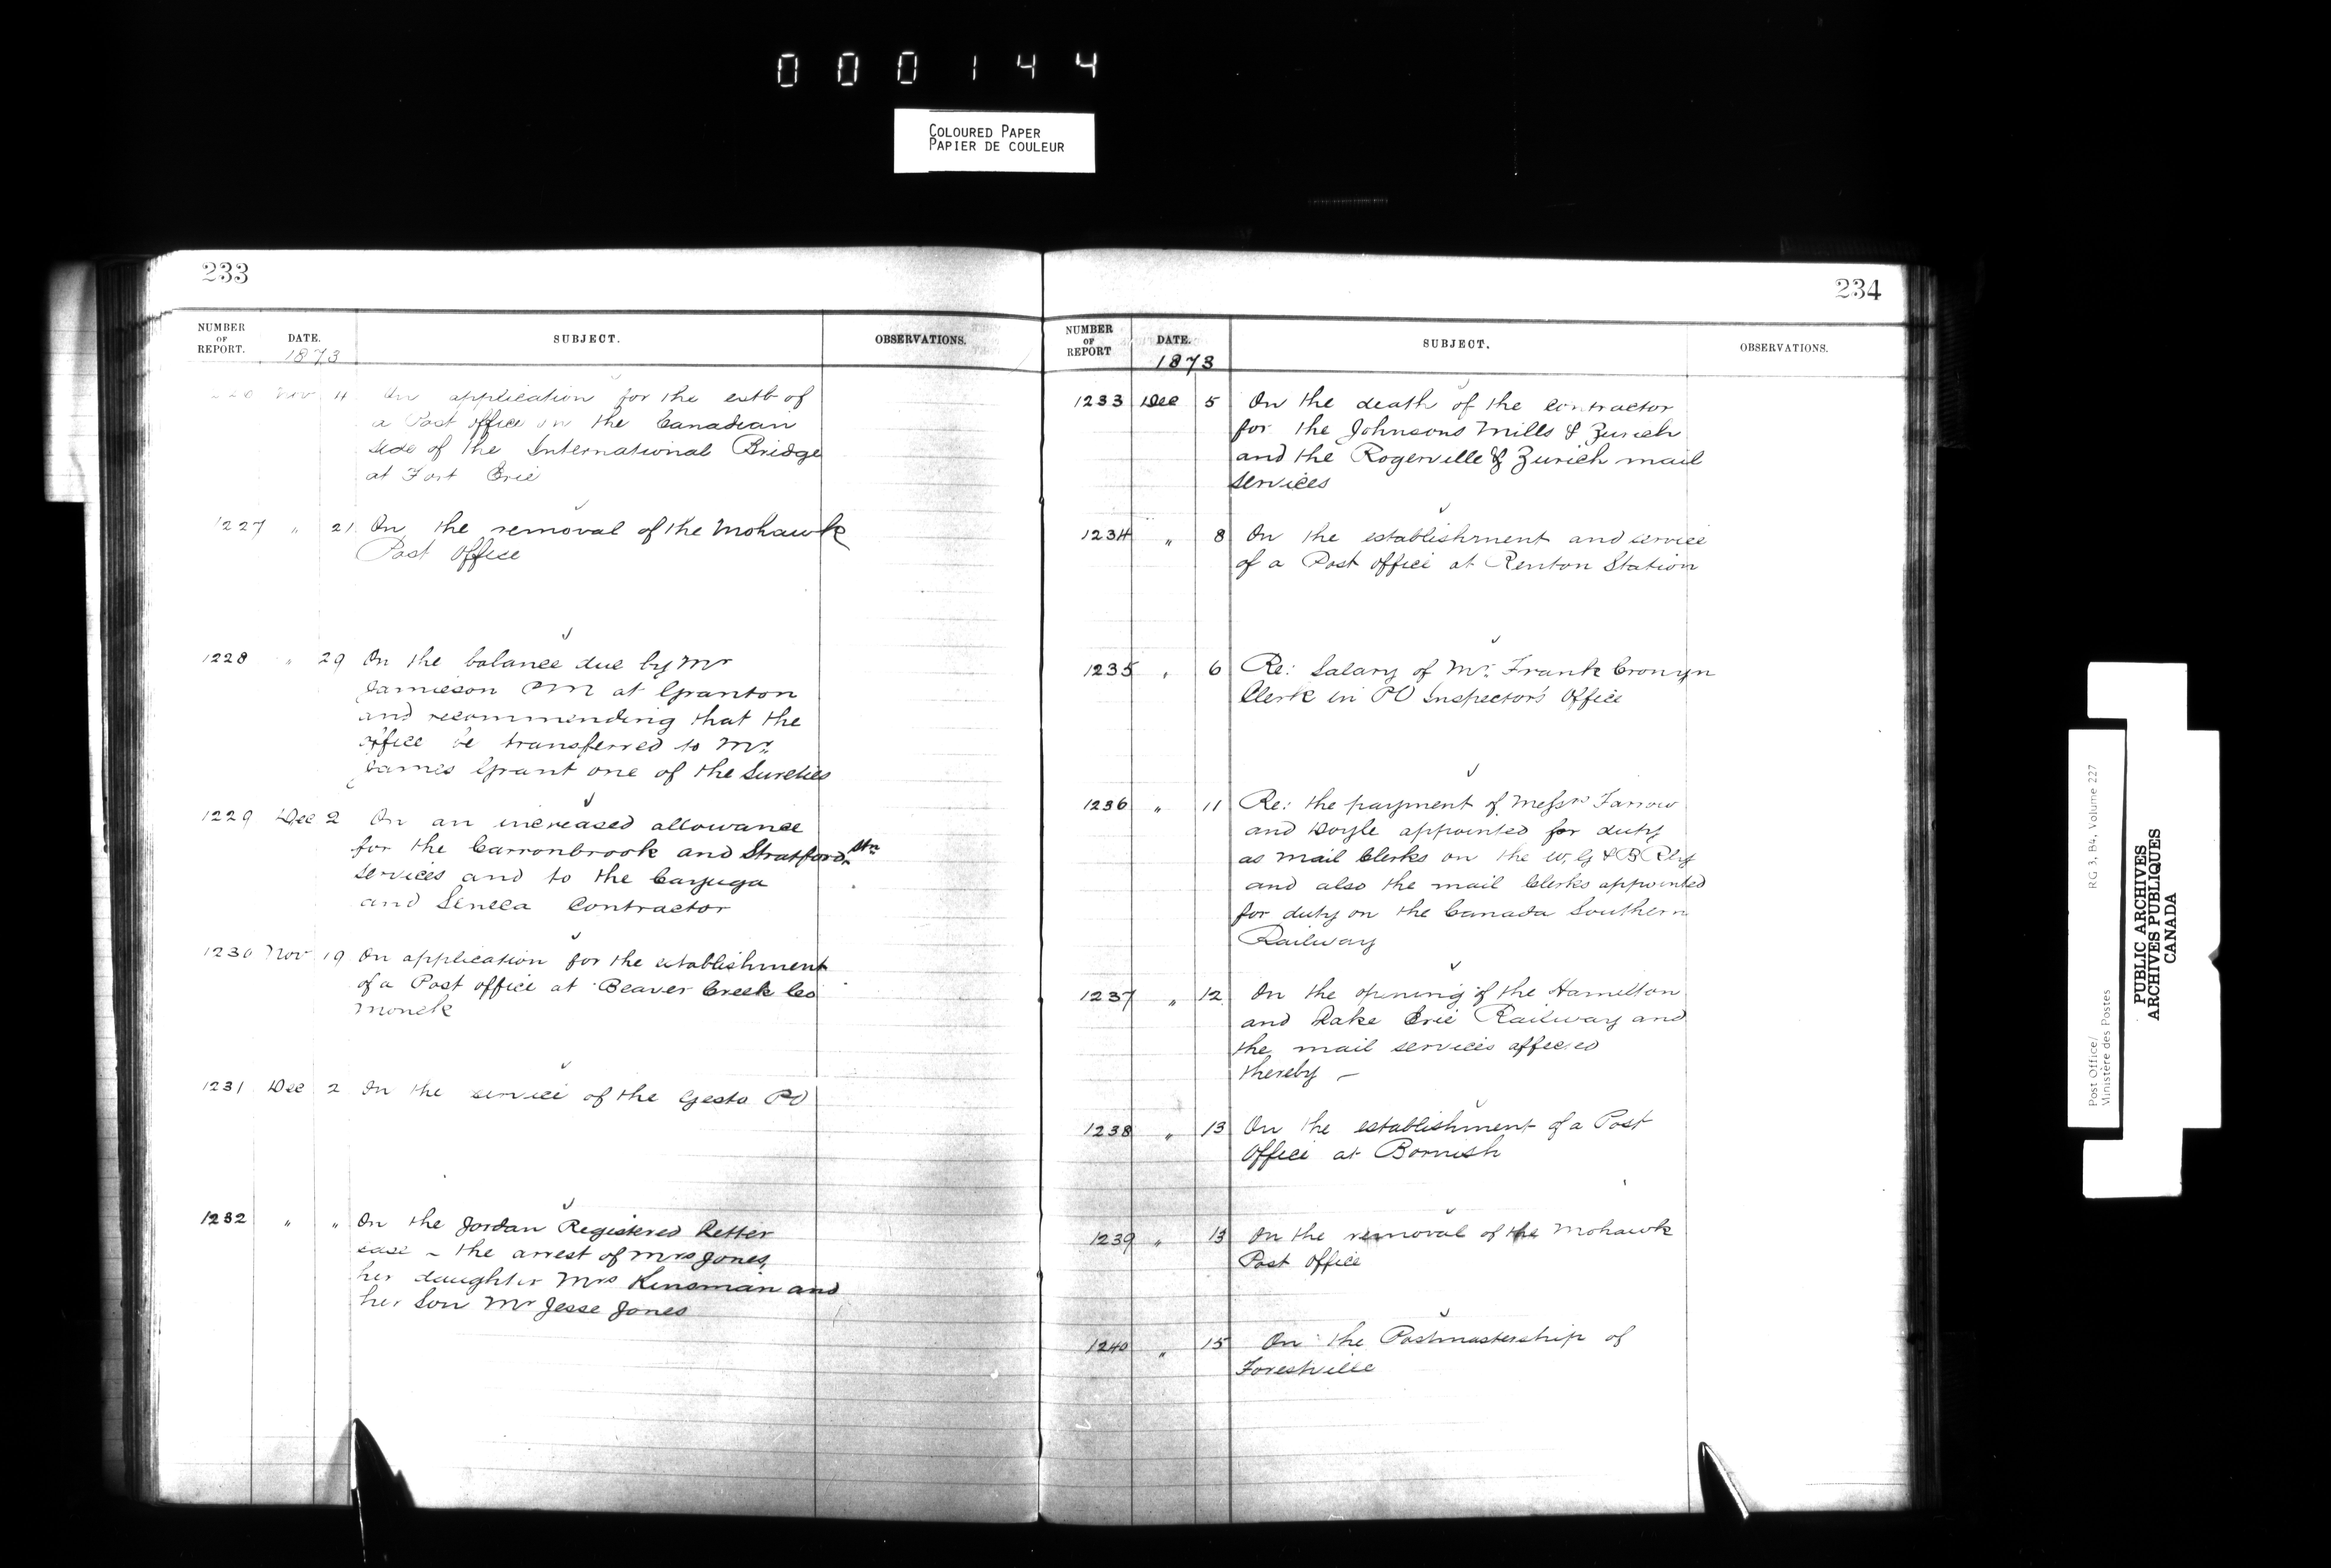 000144
COLOURED PAPER
PAPIER DE COULEUR
233
NUMBER OF REPORT. DATE. SUBJECT. OBSERVATIONS.
1873
Nov 4 On application for the estb of
a Post office on the Canadian
side of the International Bridge
at Fort Erie
1227 " 21 On the removal of the Mohawk
Post Office
1228 " 29 On the balance due by Mr
Jamieson PM at Granton
and recommending that the
office be transferred to Mr.
James Grant one of the Sureties
1229 Dec 2 On an increased allowance
for the Carronbrook and Stratford Stn
services and to the Cayuga
and Seneca Contractor
1230 Nov 19 On application for the establishment
of a Post office at Beaver Creek Co
Monck
1231 Dec 2 On the service of the Gesto PO
1232 " " On the Jordan Registered Letter
case - the arrest of Mrs Jones,
her daughter Mrs Kinsman and
her Son Mr Jesse Jones
234
NUMBER OF REPORT DATE. SUBJECT. OBSERVATIONS.
1873
1233 Dec 5 On the death of the contractor
for the Johnsons Mills & Zurich
and the Rogerville & Zurich mail
services
1234 " 8 On the establishment and service
of a Post office at Renton Station
1235 " 6 Re: Salary of Mr. Frank Cronyn
Clerk in PO Inspector's Office
1236 " 11 Re: the payment of Messrs Farrow
and Doyle appointed for duty
as mail Clerks on the W, G & B Rly
and also the mail Clerks appointed
for duty on the Canada Southern
Railway
1237 " 12 On the opening of the Hamilton
and Lake Erie Railway and
the mail services affected
thereby —
1238 " 13 On the establishment of a Post
Office at Bornish
1239 " 13 On the removal of the Mohawk
Post Office
1240 " 15 On the Postmastership of
Forestville
Post Office/ RG 3, B4, Volume 227
Ministère des Postes
PUBLIC ARCHIVES
ARCHIVES PUBLIQUES
CANADA